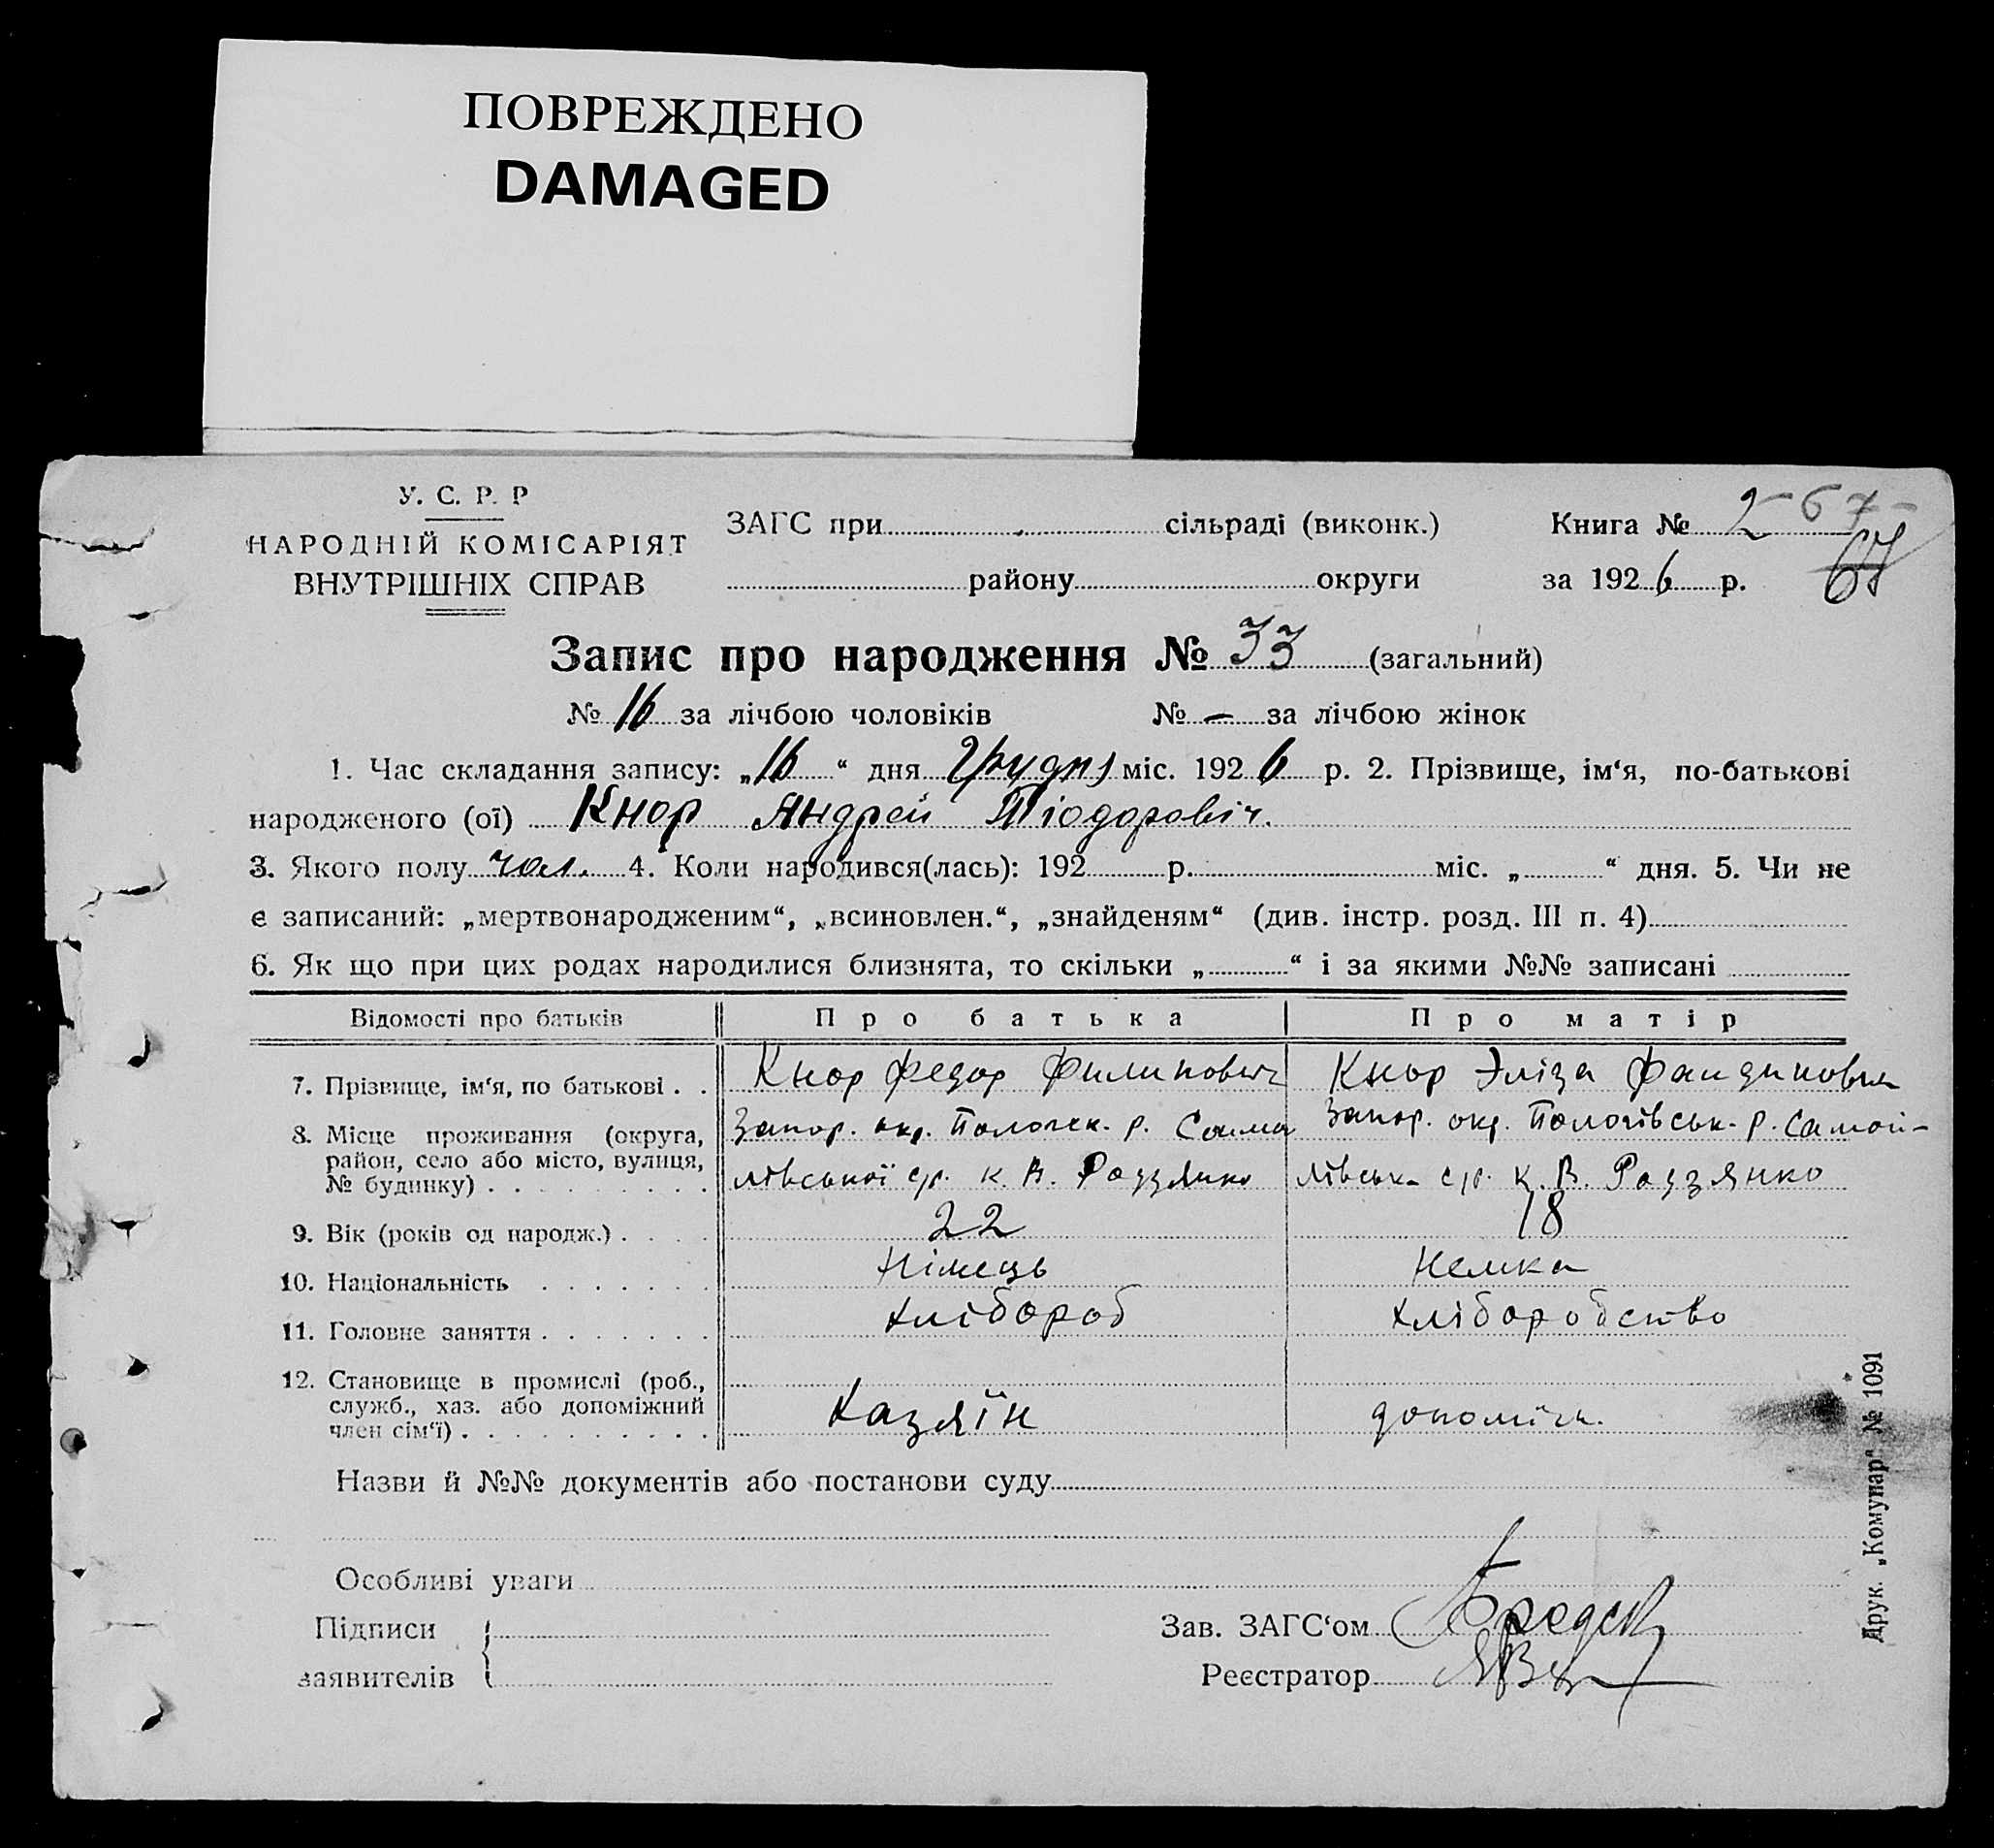 ПОВРЕЖДЕНО
DAMAGED
У. С. Р. Р
НАРОДНІЙ КОМІСАРІЯТ
ВНУТРІШНІХ СПРАВ
ЗАГС при сільраді (виконк.)
району округи
Книга № 2 - 67 -
за 1926 р. 67
Запис про народження № 33 (загальний)
№ 16 за лічбою чоловіків № — за лічбою жінок
1. Час складання запису: „16“ дня Грудня міс. 1926 р. 2. Прізвище, ім‘я, по-батькові
народженого (ої) Кнор Андрей Тіодоровіч.
3. Якого полу чол. 4. Коли народився(лась): 192 р. міс. „ “ дня. 5. Чи не
є записаний: „мертвонародженим“, „всиновлен.“, „знайденям“ (див. інстр. розд. III п. 4)
6. Як що при цих родах народилися близнята, то скільки „ “ і за якими №№ записані
Відомості про батьків Про батька Про матір
7. Прізвище, ім‘я, по батькові . . Кнор Федор Филипович Кнор Эліза
8. Місце проживання (округа, Запор. окр. Пологек. р. Запор. окр. Пологівськ. р. Самой-
район, село або місто, вулиця,
№ будинку) . . . . . . . . . лівської с/р. к. В. Родзянко лівськ. с/р. к. В. Родзянко
9. Вік (років од народж.) . . . . 22 18
10. Національність . . . . . . . Німець Немка
11. Головне заняття . . . . . . . хлібороб хліборобство
12. Становище в промислі (роб.,
служб., хаз. або допоміжний Хазяїн
член сім‘ї) . . . . . . . . . .
Назви й №№ документів або постанови суду
Особливі уваги
Підписи
заявителів
Зав. ЗАГС‘ом
Реєстратор
Друк. „Комунар“ № 1091